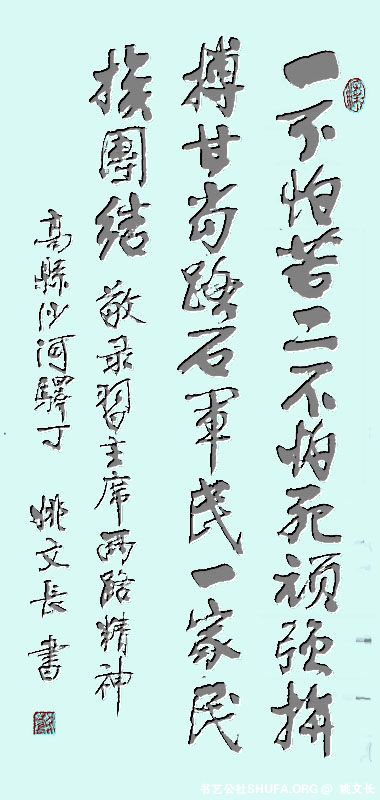 一不怕苦二不怕死顽强拼
搏甘当路石軍民一家民
族團结 敬录習主席两路精神
高縣沙河驛丁 姚文長 書
书艺公社SHUFA.ORG @ 姚文长